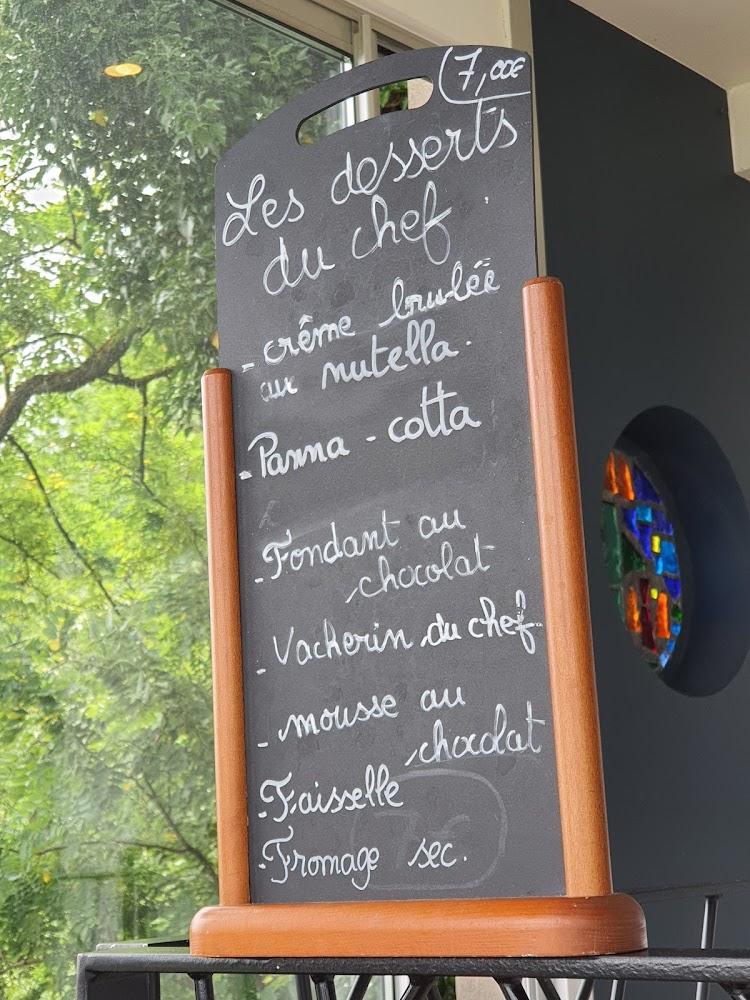 7,00€
Les desserts
du chef
- crême brulée
au nutella.
- Panna - cotta
- Fondant au
chocolat
- Vacherin du chef
- mousse au
chocolat
- Faisselle
- Fromage sec.